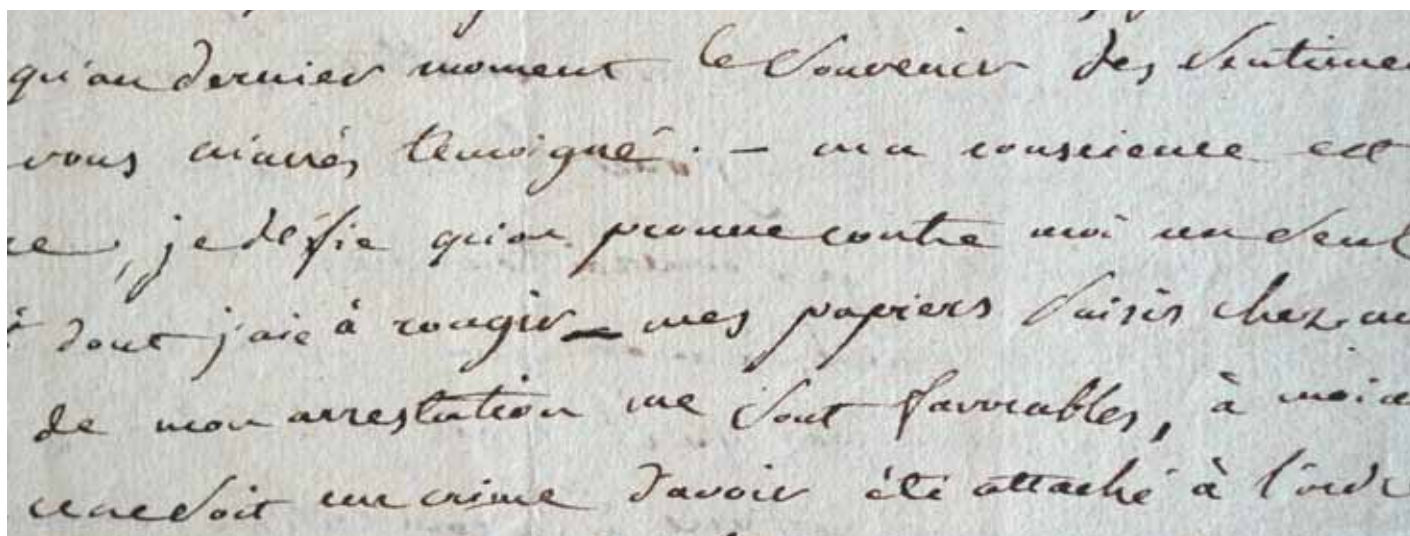 qu'au dernier moment le souvenir des sentime
vous témoigné. - ma conscience est
ce, je défie qu'on prouve contre moi un seul
dont j'aie à rougir - mes papiers saisis chez m
de mon arrestation me sont favorables, à moin
ce ne soit un crime d'avoir été attaché à l'ordr